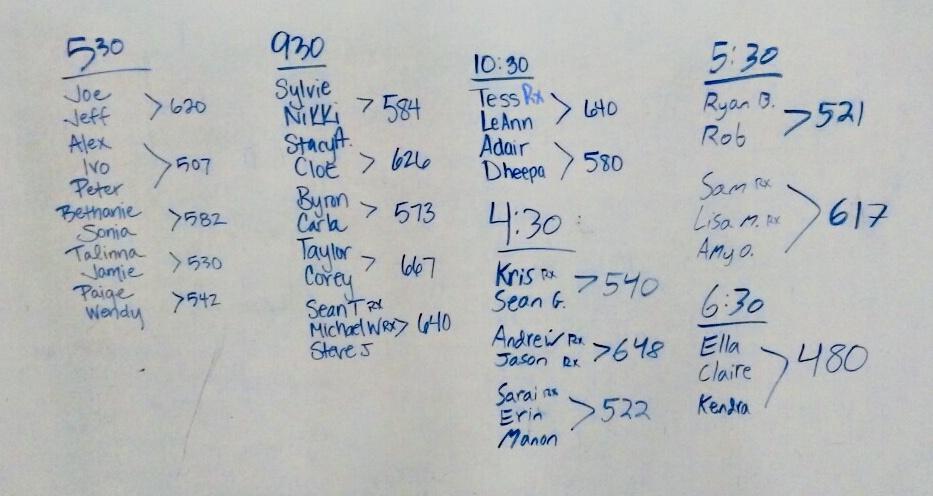 530
Joe
Jeff > 620
Alex
Ivo > 507
Peter
Bethanie
Sonia > 582
Talinna
Jamie > 530
Paige
Wendy > 542
930
Sylvie
Nikki > 584
Stacy A.
Cloe > 626
Byron
Carla > 573
Taylor
Corey > 667
Sean T Rx
Michael W Rx > 640
Steve J
10:30
Tess Rx
LeAnn > 640
Adair
Dheepa > 580
4:30
Kris Rx
Sean G. > 540
Andrew Rx
Jason Rx > 648
Sarai Rx
Erin > 522
Manon
5:30
Ryan B.
Rob > 521
Sam Rx
Lisa M. Rx > 617
Amy O.
6:30
Ella
Claire > 480
Kendra